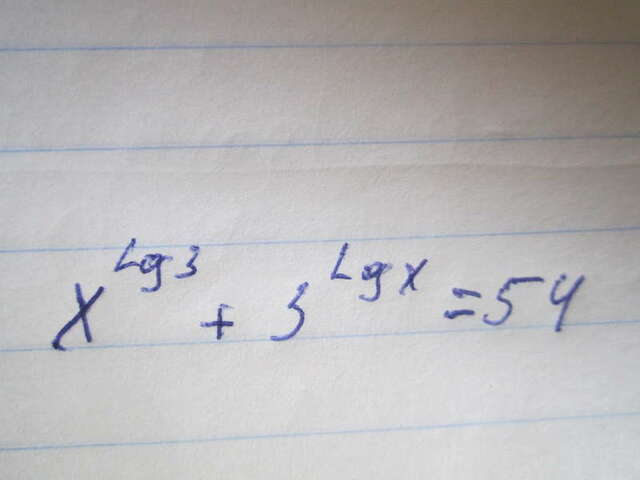 x^{lg 3} + 3^{lg x} = 54